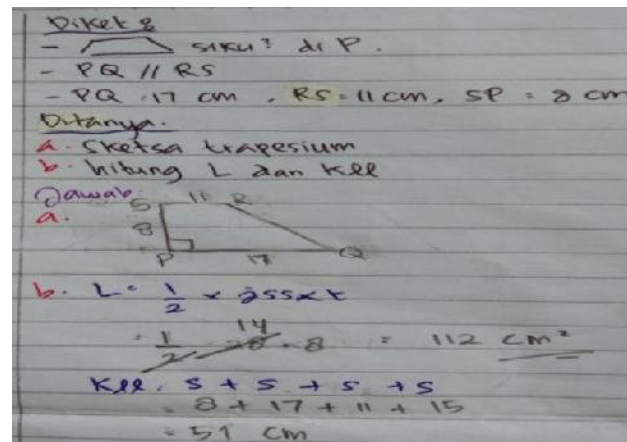 Diket :
- siku² di P.
- PQ // RS
- PQ = 17 cm, RS = 11 cm, SP = 8 cm
Ditanya.
a. Sketsa trapesium
b. hitung L dan kll
Jawab.
a.
S 11 R
8
P 17 Q
b. L = 1/2 × jss × t
= 1/2 · 28 14 · 8 = 112 cm²
Kll. s + s + s + s
= 8 + 17 + 11 + 15
= 51 cm